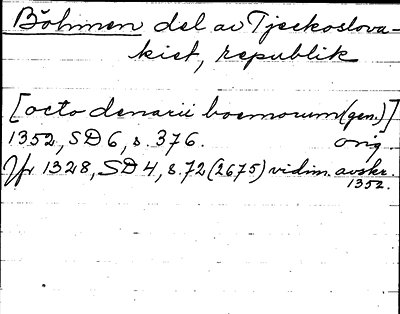 Böhmen del av Tjeckoslova-
kist, republik
[octo denarii boemorum (gen.)]
1352, SD 6, s. 376. orig
Jfr 1328, SD 4, s. 72 (2675) vidim. avskr.
1352.